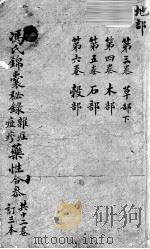 地部
第三卷 草部下
第四卷 木部
第五卷 石部
第六卷 穀部
馮氏錦囊秘錄雜症痘疹藥性合參
共十二卷
訂三本